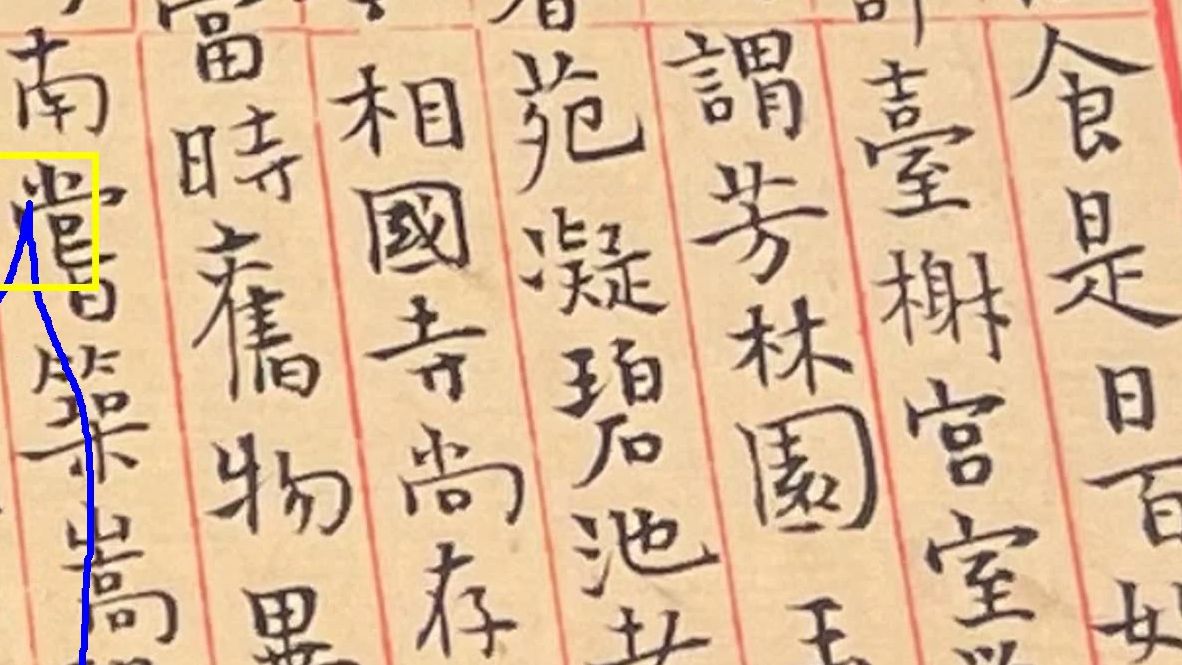 食是日百
臺榭宮室
謂芳林園玉
苑凝碧池
相國寺尚存
富時舊物
南嘗築嵩